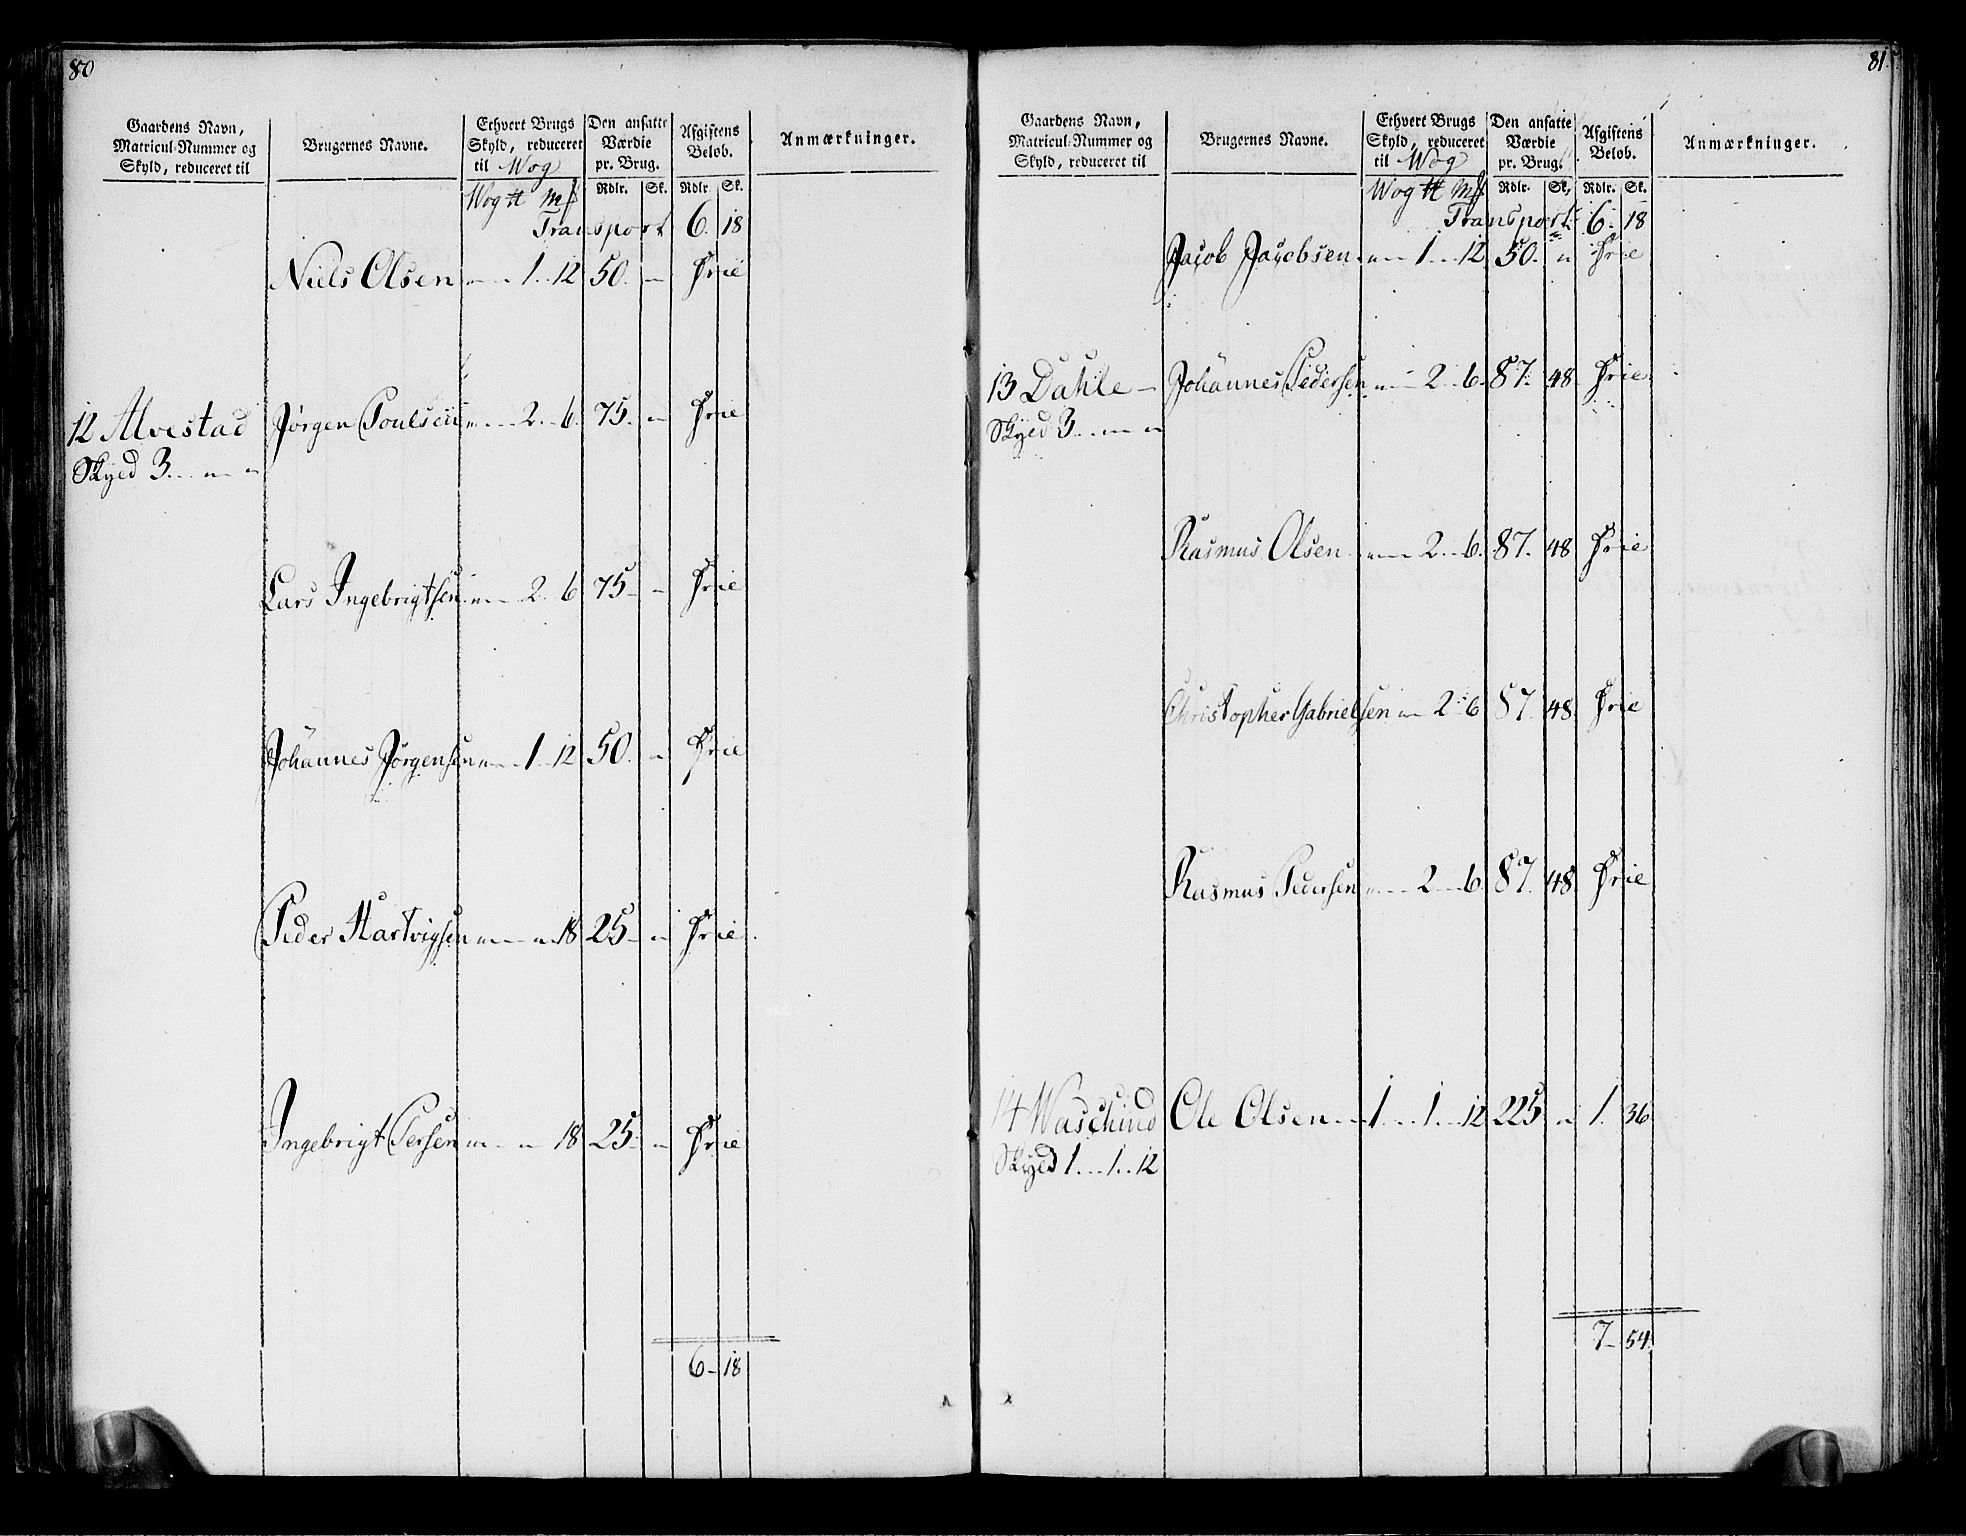 80
Gaardens Navn, Matricul-Nummer og Skyld, reduceret til
Brugernes Navne.
Ethvert Brugs Skyld, reduceret til Wog
Den ansatte Værdie pr. Brug.
Afgiftens Beløb.
Anmærkninger.
Wog ℔ Mk Rdlr. Sk. Rdlr. Sk.
Transport 6. 18
Niels Olsen „ 1. 12 50. „ Frie
12 Alvestad Jørgen Poulsen „ 2. 6. 75. „ Frie
Skyld 3. „ „
Lars Ingebrigtsen „ 2. 6 75 „ Frie
Johannes Jørgensen „ 1. 12 50. „ Frie
Peder Hartvigsen „ „ 18 25 „ Frie
Ingebrigt Persen „ „ 18 25 „ Frie
6 18
81
Gaardens Navn, Matricul-Nummer og Skyld, reduceret til
Brugernes Navne.
Ethvert Brugs Skyld, reduceret til Wog
Den ansatte Værdie pr. Brug.
Afgiftens Beløb.
Anmærkninger.
Wog ℔ Mk Rdlr. Sk. Rdlr. Sk.
Transport 6. 18
Jacob Jacobsen „ 1. 12. 50. „ Frie
13 Dahle Johannes Pedersen „ 2. 6. 87. 48 Frie
Skyld 3. „ „
Rasmus Olsen „ 2. 6. 87. 48 Frie
Christopher Gabrielsen „ 2. 6 87. 48 Frie
Rasmus Pedersen „ 2. 6 87. 48 Frie
14 Ole Olsen 1. 1. 12 225 „ 1. 36
Skyld 1. 1. 12
7 54